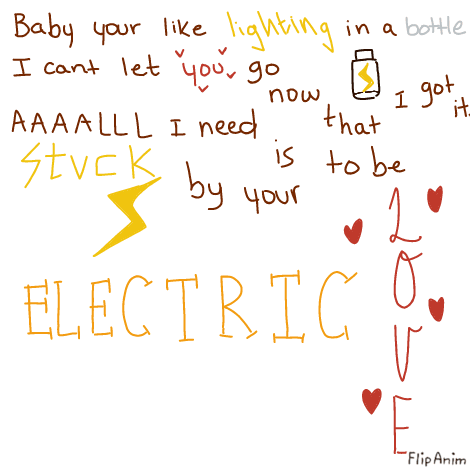 Baby your like lighting in a bottle
I cant let you go
now that I got it.
AAAALLL I need is to be
stuck by your
ELECTRIC
LOVE
FlipAnim